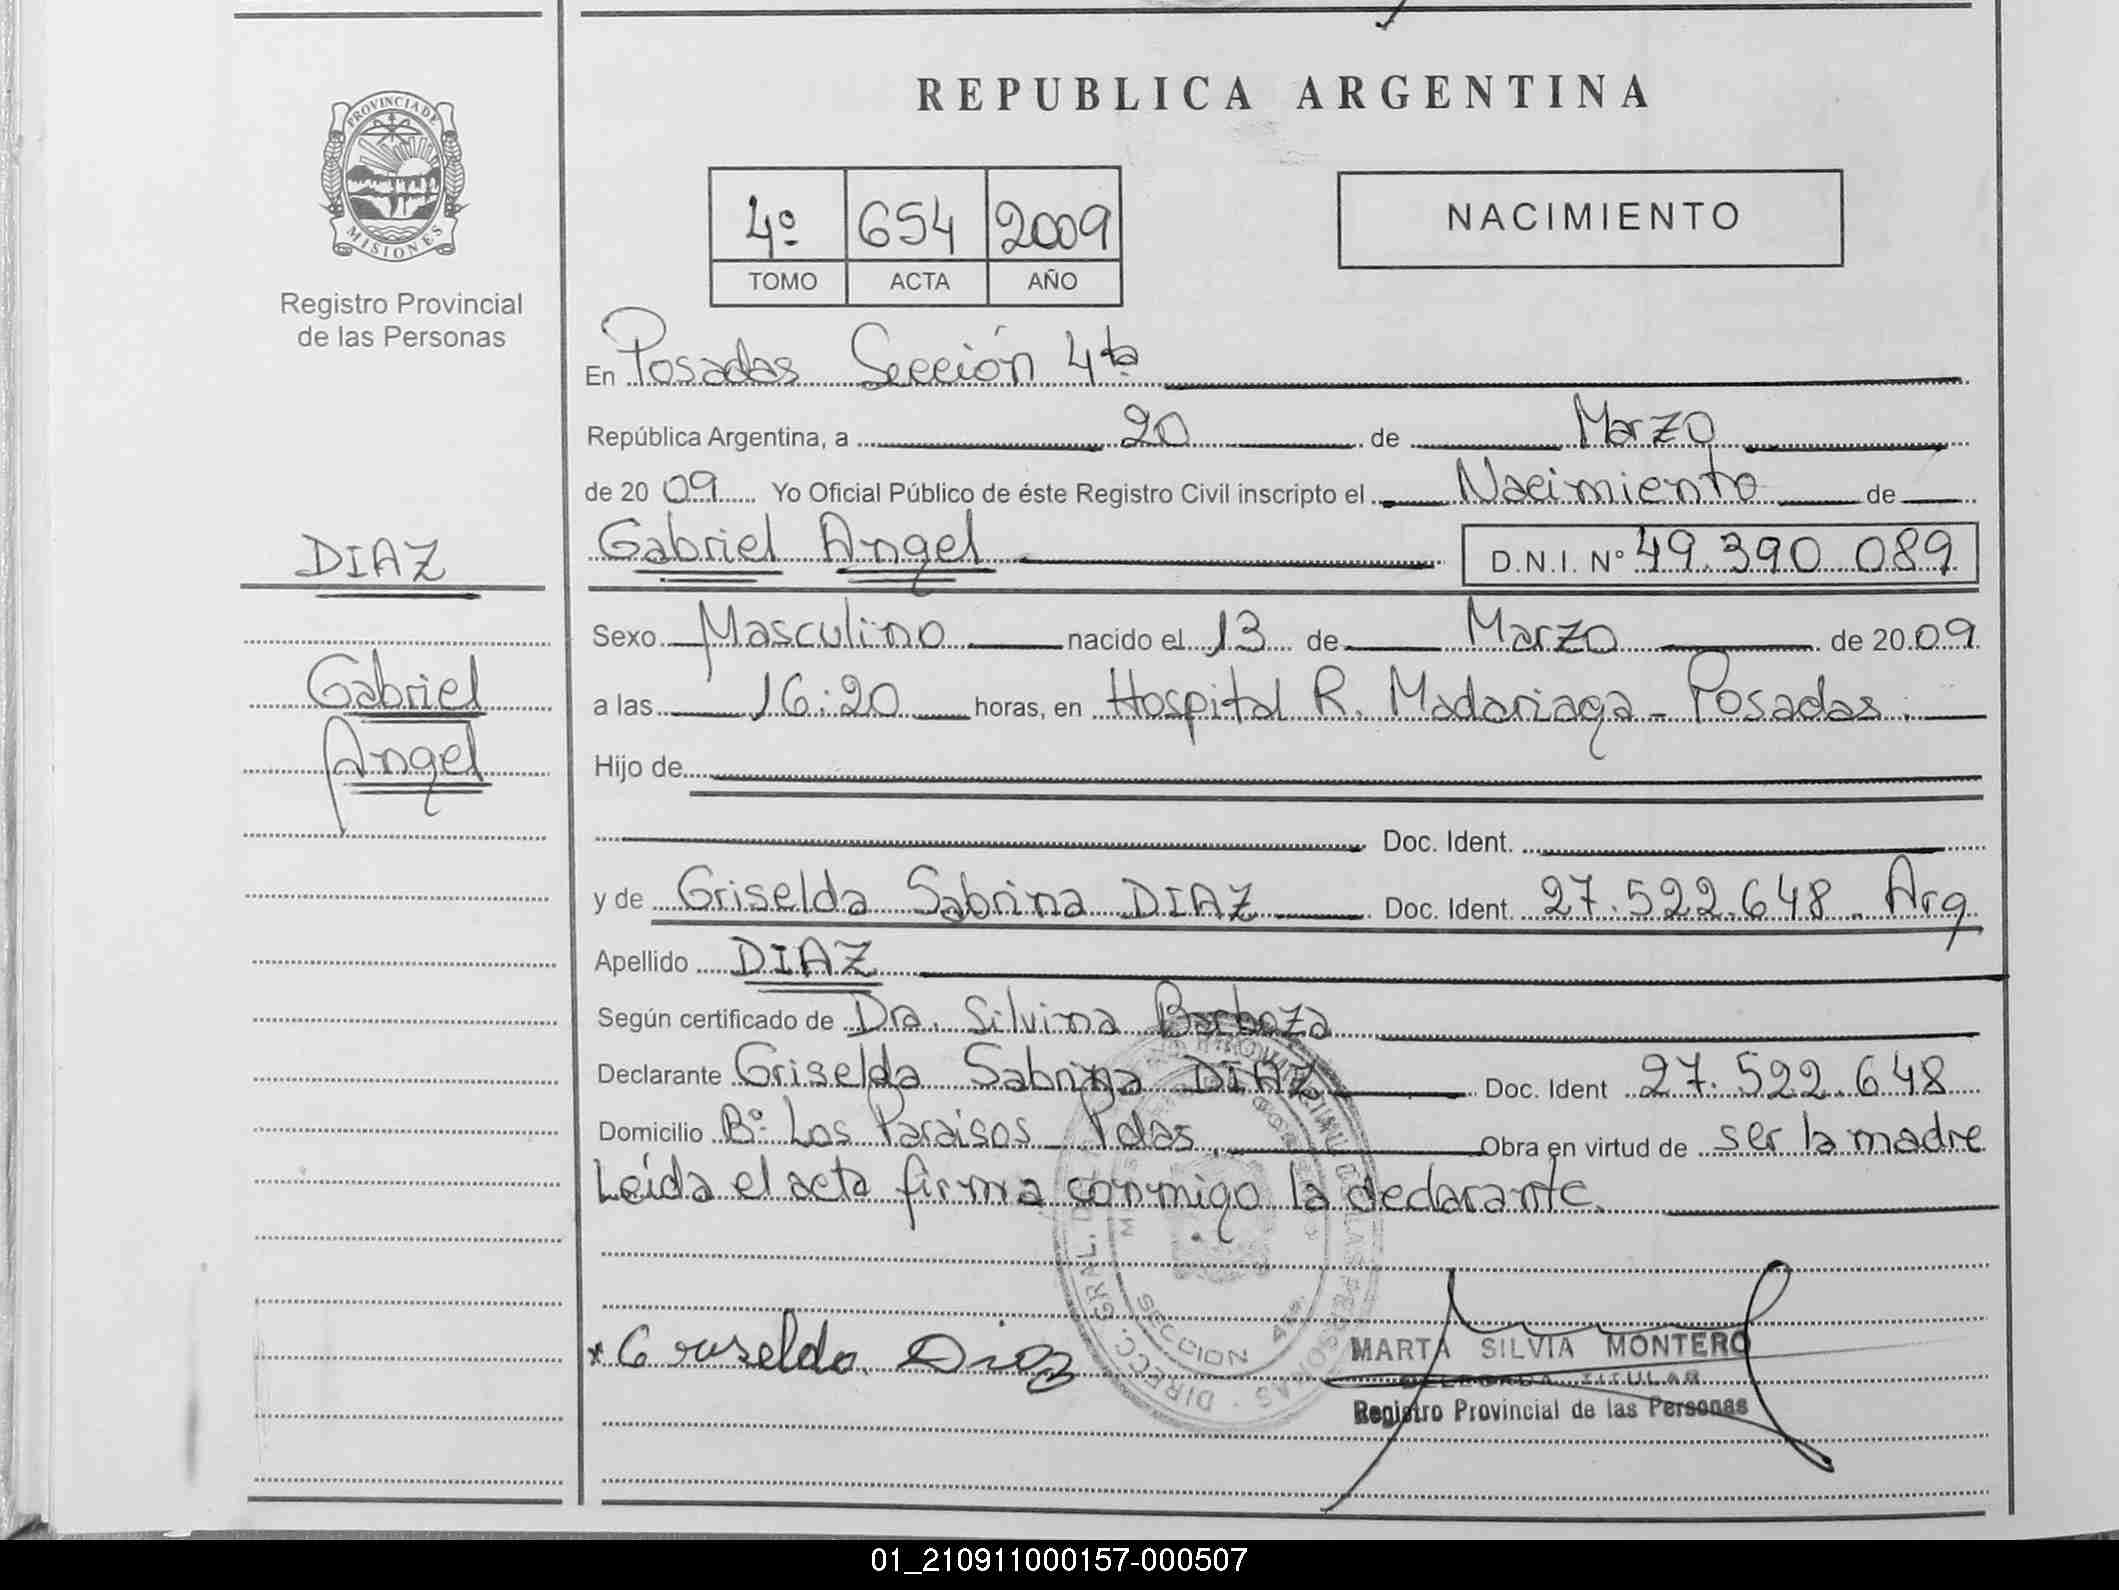 REPUBLICA ARGENTINA
PROVINCIA DE
MISIONES
Registro Provincial
de las Personas
4º 654 2009
TOMO ACTA AÑO
NACIMIENTO
En Posadas Sección 4ta
República Argentina, a 20 de Marzo
de 2009 Yo Oficial Público de éste Registro Civil inscripto el Nacimiento de
DIAZ
Gabriel Angel D.N.I. Nº 49.390.089
Sexo Masculino nacido el 13 de Marzo de 2009
Gabriel
a las 16:20 horas, en Hospital R. Madariaga - Posadas.
Angel
Hijo de
Doc. Ident.
y de Griselda Sabrina DIAZ Doc. Ident. 27.522.648. Arg
Apellido DIAZ
Según certificado de Dra. Silvina Barboza
Declarante Griselda Sabrina DIAZ Doc. Ident 27.522.648
Domicilio Bº Los Paraisos Pdas. Obra en virtud de ser la madre
Leída el acta firma conmigo la declarante.
DIRECC. GRAL. DE LAS PERSONAS
SECCION 4ta.
* Griselda Diaz
MARTA SILVIA MONTERO
DELEGADA TITULAR
Registro Provincial de las Personas
01_210911000157-000507